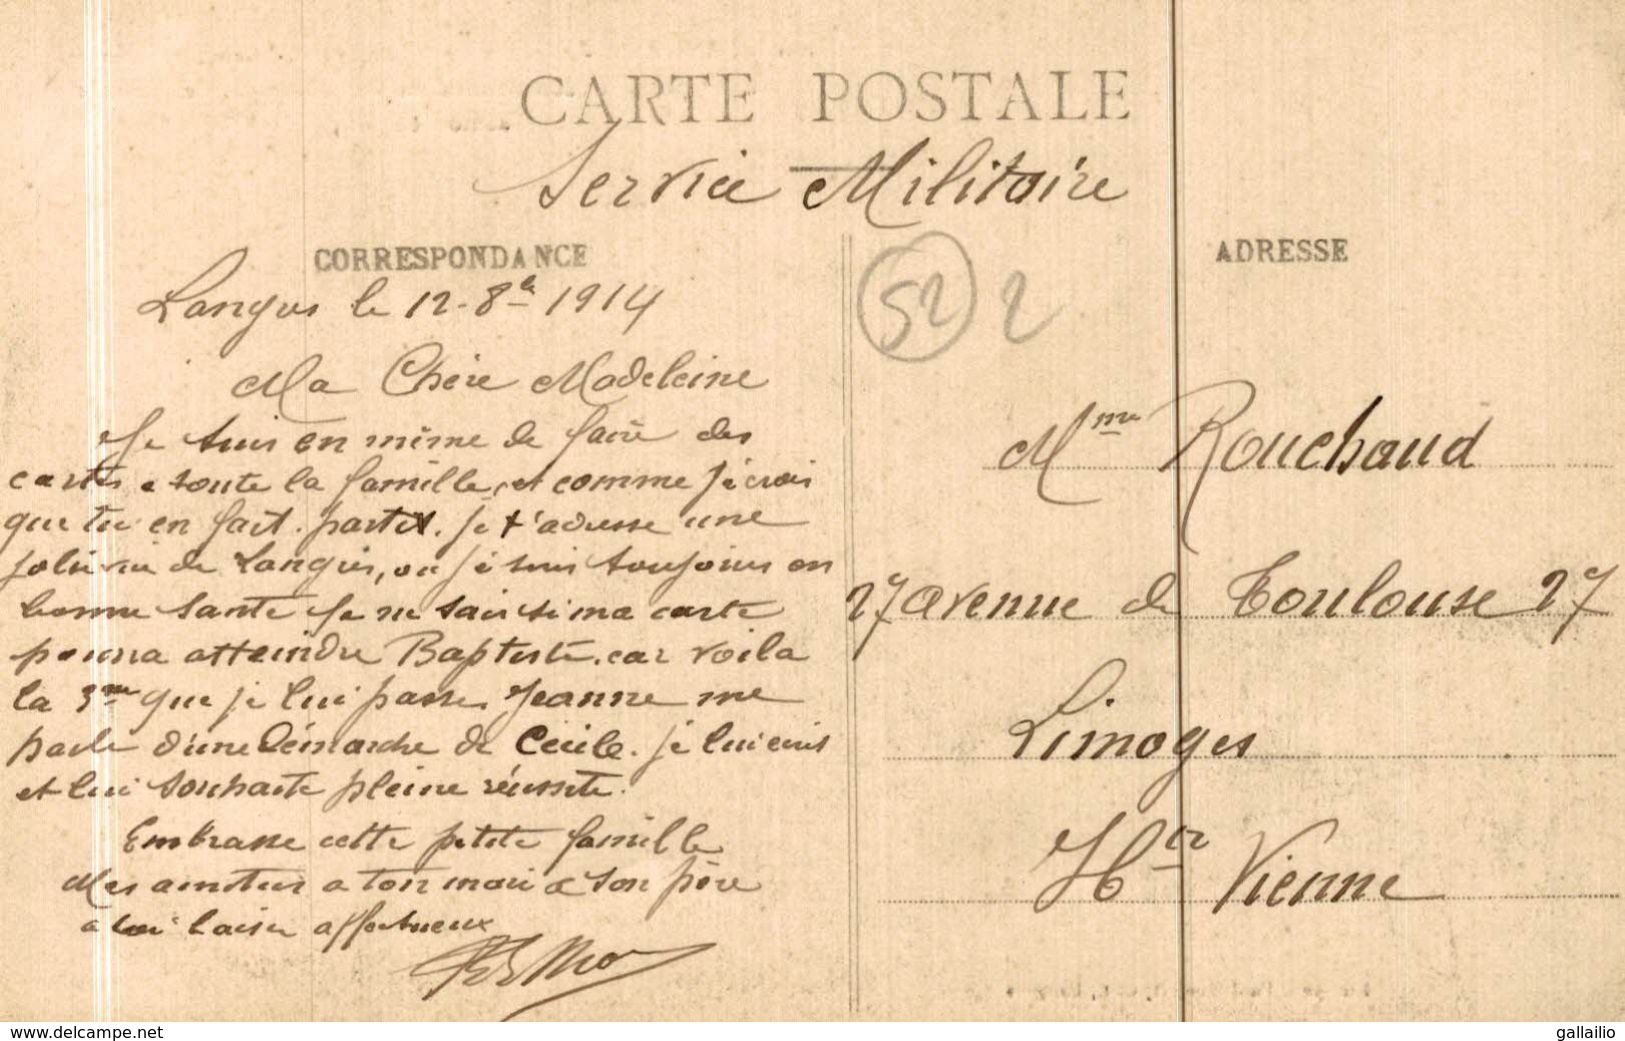 CARTE POSTALE
Service Militaire
CORRESPONDANCE
Langres le 12-8bre 1914
Ma Chère Madeleine
Je suis en même de faire des
cartes a toute la famille, et comme je crois
que tu en fait partit. je t'adresse une
jolie vue de Langres, ou je suis toujours en
bonne Santé Je ne sais si ma carte
pourra atteindre Baptiste. car voila
la 3me que je lui passe. Jeanne me
parle d'une Démarche de Cécile. je lui écris
et lui souhaite pleine réussite.
Embrasse cette petite famille
Mes amitiés a ton mari a son père
a toi baiser affectueux
52 2
ADRESSE
Mme Rouchaud
27 avenue de Toulouse 27
Limoges
Hte Vienne
www.delcampe.net
gallailio